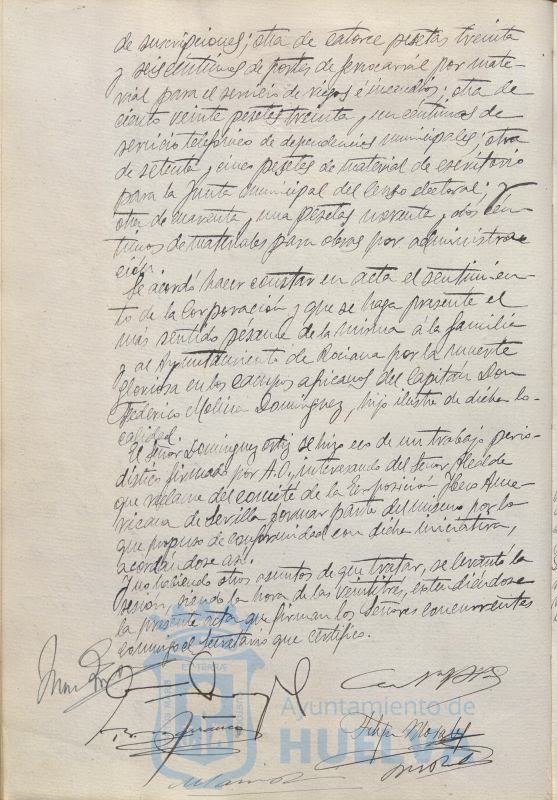 de suscripciones; otra de catorce pesetas treinta
y seis centimos de portes de ferrocarril por mate-
rial para el servicio de riegos e incendios; otra de
ciento veinte pesetas treinta y un centimos de
servicio telefónico de dependencias municipales; otra
de setenta y cinco pesetas de material de escritorio
para la Junta municipal del Censo electoral; y
otra de cuarenta y una pesetas noventa y dos cén-
timos de materiales para obras por administra-
ción.
Se acordó hacer constar en acta el sentimien-
to de la Corporación y que se haga presente el
más sentido pésame de la misma á la familia
y al Ayuntamiento de Rociana por la muerte
gloriosa en los campos africanos del Capitán Don
Federico Molina Dominguez, hijo ilustre de dicha lo-
calidad.
El Señor Dominguez Ortiz se hizo eco de un trabajo perio-
distico firmado por A.O, interesando del Señor Alcalde
que reclame del comité de la Exposición Ibero Ame-
ricana de Sevilla formar parte del mismo por lo
que propuso de conformidad con dicha iniciativa,
acordándose así.
Y no habiendo otros asuntos de que tratar, se levantó la
sesión, siendo la hora de las veintitres, extendiéndose
la presente acta que firman los Señores concurrentes
conmigo el Secretario que certifico.
Ayuntamiento de
HUELVA
Felipe Morales